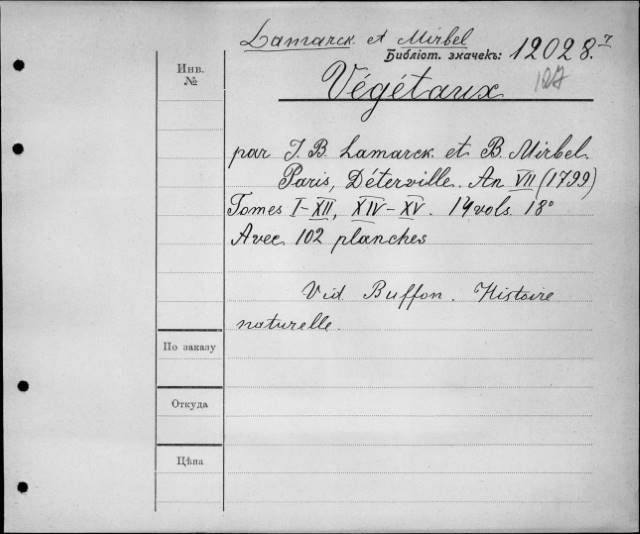 Lamarck et Mirbel
Библіот. значекъ: 12028.7
Инв.
№
Végétaux
par J. B. Lamarck et B. Mirbel
Paris, Déterville. An VII (1799)
Tomes I-XII, XIV-XV. 14 vols. 18°
Avec 102 planches
Vid. Buffon. Histoire
naturelle.
По заказу
Откуда
Цѣна